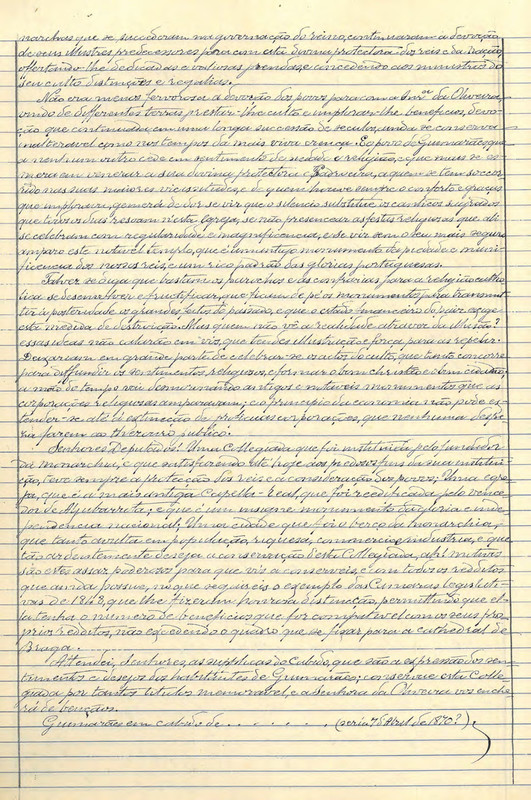 narchas que se succederam na governação do reino, continuaram a devoção
de seus Illustres predecessores para com esta divina protectora dos reis e da Nação,
offertando-lhe dedicadas e valiosas prendas, e concedendo aos ministros do
seu culto distinções e regalias.
Não era menos fervorosa a devoção dos povos para com a Snrª da Oliveira,
vindo de differentes terras prestar-lhe culto e implorar-lhe beneficios, devo-
ção que continuada em uma longa successão de seculos, ainda se conserva
inalteravel como nos tempos da mais viva crença. E o povo de Guimarães que
a nenhum outro cede em sentimento de piedade e religião, e que mais se es-
mera em venerar a sua divina protectora e Padroeira, a quem tem soccor-
rido nas suas maiores vicissitudes, e de quem houve sempre o conforto e graças
que implorava, gemerá de dor se vir que o silencio substitue os canticos sagrados
que tivos os dias resoam n'esta Egreja, se não presencear as festas religiosas que ali
se celebram com regularidade e magnificencia, e se vir sem o seu mais seguro
amparo este notavel templo, que é um antigo monumento da piedade e muni-
ficencia dos nossos reis, e um rico padrão das glorias portuguesas.
Talvez se diga que bastam os parochos e as confrarias para a religião catho-
lica se desenvolver e fructificar, que ficam de pé os monumentos para transmit-
tir á posteridade os grandes feitos do passado, e que o estado financeiro do paiz exige
esta medida de destruição. Mas quem não vê a realidade atravez da illusão?
essas ideas não calarão em vós, que tendes illustração e força para as repellir.
Deixariam em grande parte de celebrar-se os actos do culto, que tanto concorre
para diffundir os sentimentos religiosos, e formar o bom christão e o bom cidadão;
a mão do tempo vai desmoronando antigos e notaveis monumentos que as
corporações religiosas amparavam; e o principio de economia não pode es-
tender-se até á extincção de proficuas corporações, que nenhuma despe-
za fazem ao thesouro publico.
Senhores Deputados! Uma Collegiada que foi instituida pelo fundador
da Monarchia, e que satisfazendo até hoje aos piedosos fins da sua institui-
ção, teve sempre a protecção dos reis e a consideração dos povos; Uma egre-
ja, que é a mais antiga Capella-Real, que foi reedificada pelo vence-
dor de Aljubarrota; e que é um insigne monumento da gloria e inde-
pendencia nacional; Uma cidade que foi o berço da monarchia,
que tanto avulta em população, riqueza, commercio e industria, e que
tão ardentemente deseja a conservação d'esta Collegiada, ah! motivos
são estes assaz poderosos para que vós a conserveis, e com todos os redditos
que ainda possue, no que seguireis o exemplo das Camaras legislati-
vas de 1848, que lhe fizeram honrosa distincção, permittindo que el-
la tenha o numero de beneficios que for compativel com os seus pro-
prios redditos, não excedendo o quadro que se fixar para a cathedral de
Braga.
Attendei, senhores, as supplicas do Cabido, que são a expressão dos sen-
timentos e desejos dos habitantes de Guimarães; conservae esta Colle-
giada por tantos titulos memoravel, e a Senhora da Oliveira vos enche-
rá de bençãos.
Guimarães em cabido de . . . . . . . (seria 7 d'Abril de 1870?)